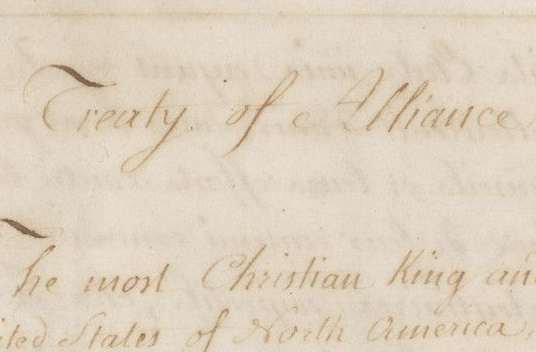 Treaty of Alliance
The most Christian King and
ited States of North America,